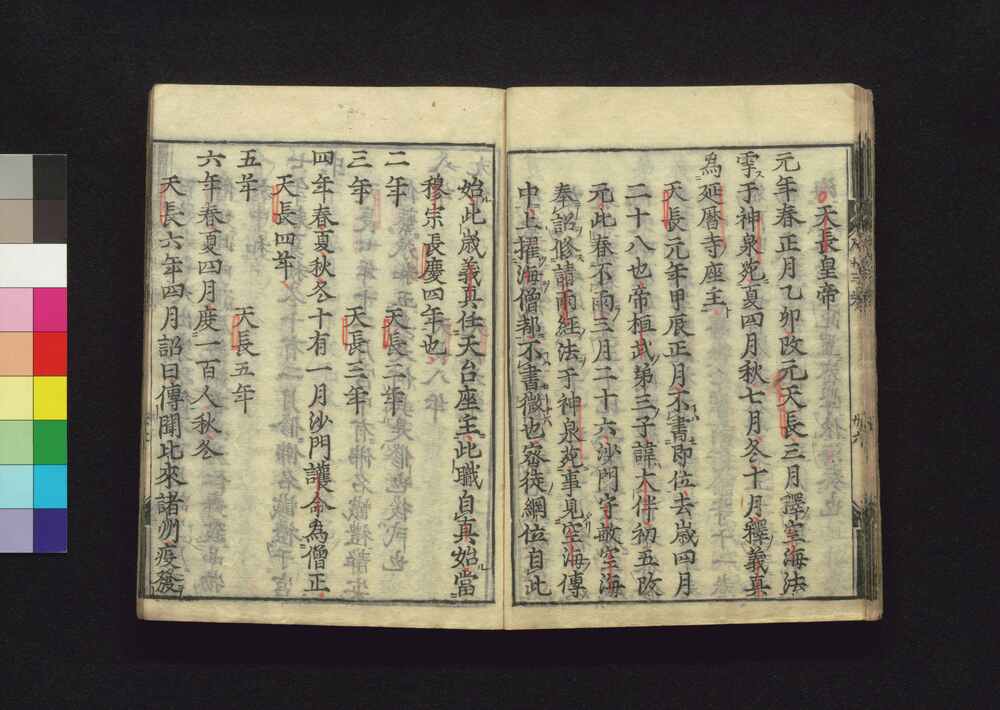 天長皇帝
元年春正月乙卯改元天長三月釋空海法
雩于神泉苑夏四月秋七月冬十月釋義真
為延曆寺座主
天長元年甲辰正月不書即位去歲四月
二十八也帝桓武第三子諱大伴初五改
元此春不雨三月二十六沙門守敏空海
奉詔修請雨経法于神泉苑事見空海傳
中上擢海僧都不書微也密徒綱位自此
始此歲義真任天台座主此職自真始當
穆宗長慶四年也
二年 天長二年
三年 天長三年
四年春夏秋冬十有一月沙門護命為僧正
天長四年
五年 天長五年
六年春夏四月度一百人秋冬
天長六年四月詔曰傳聞比來諸州疫發